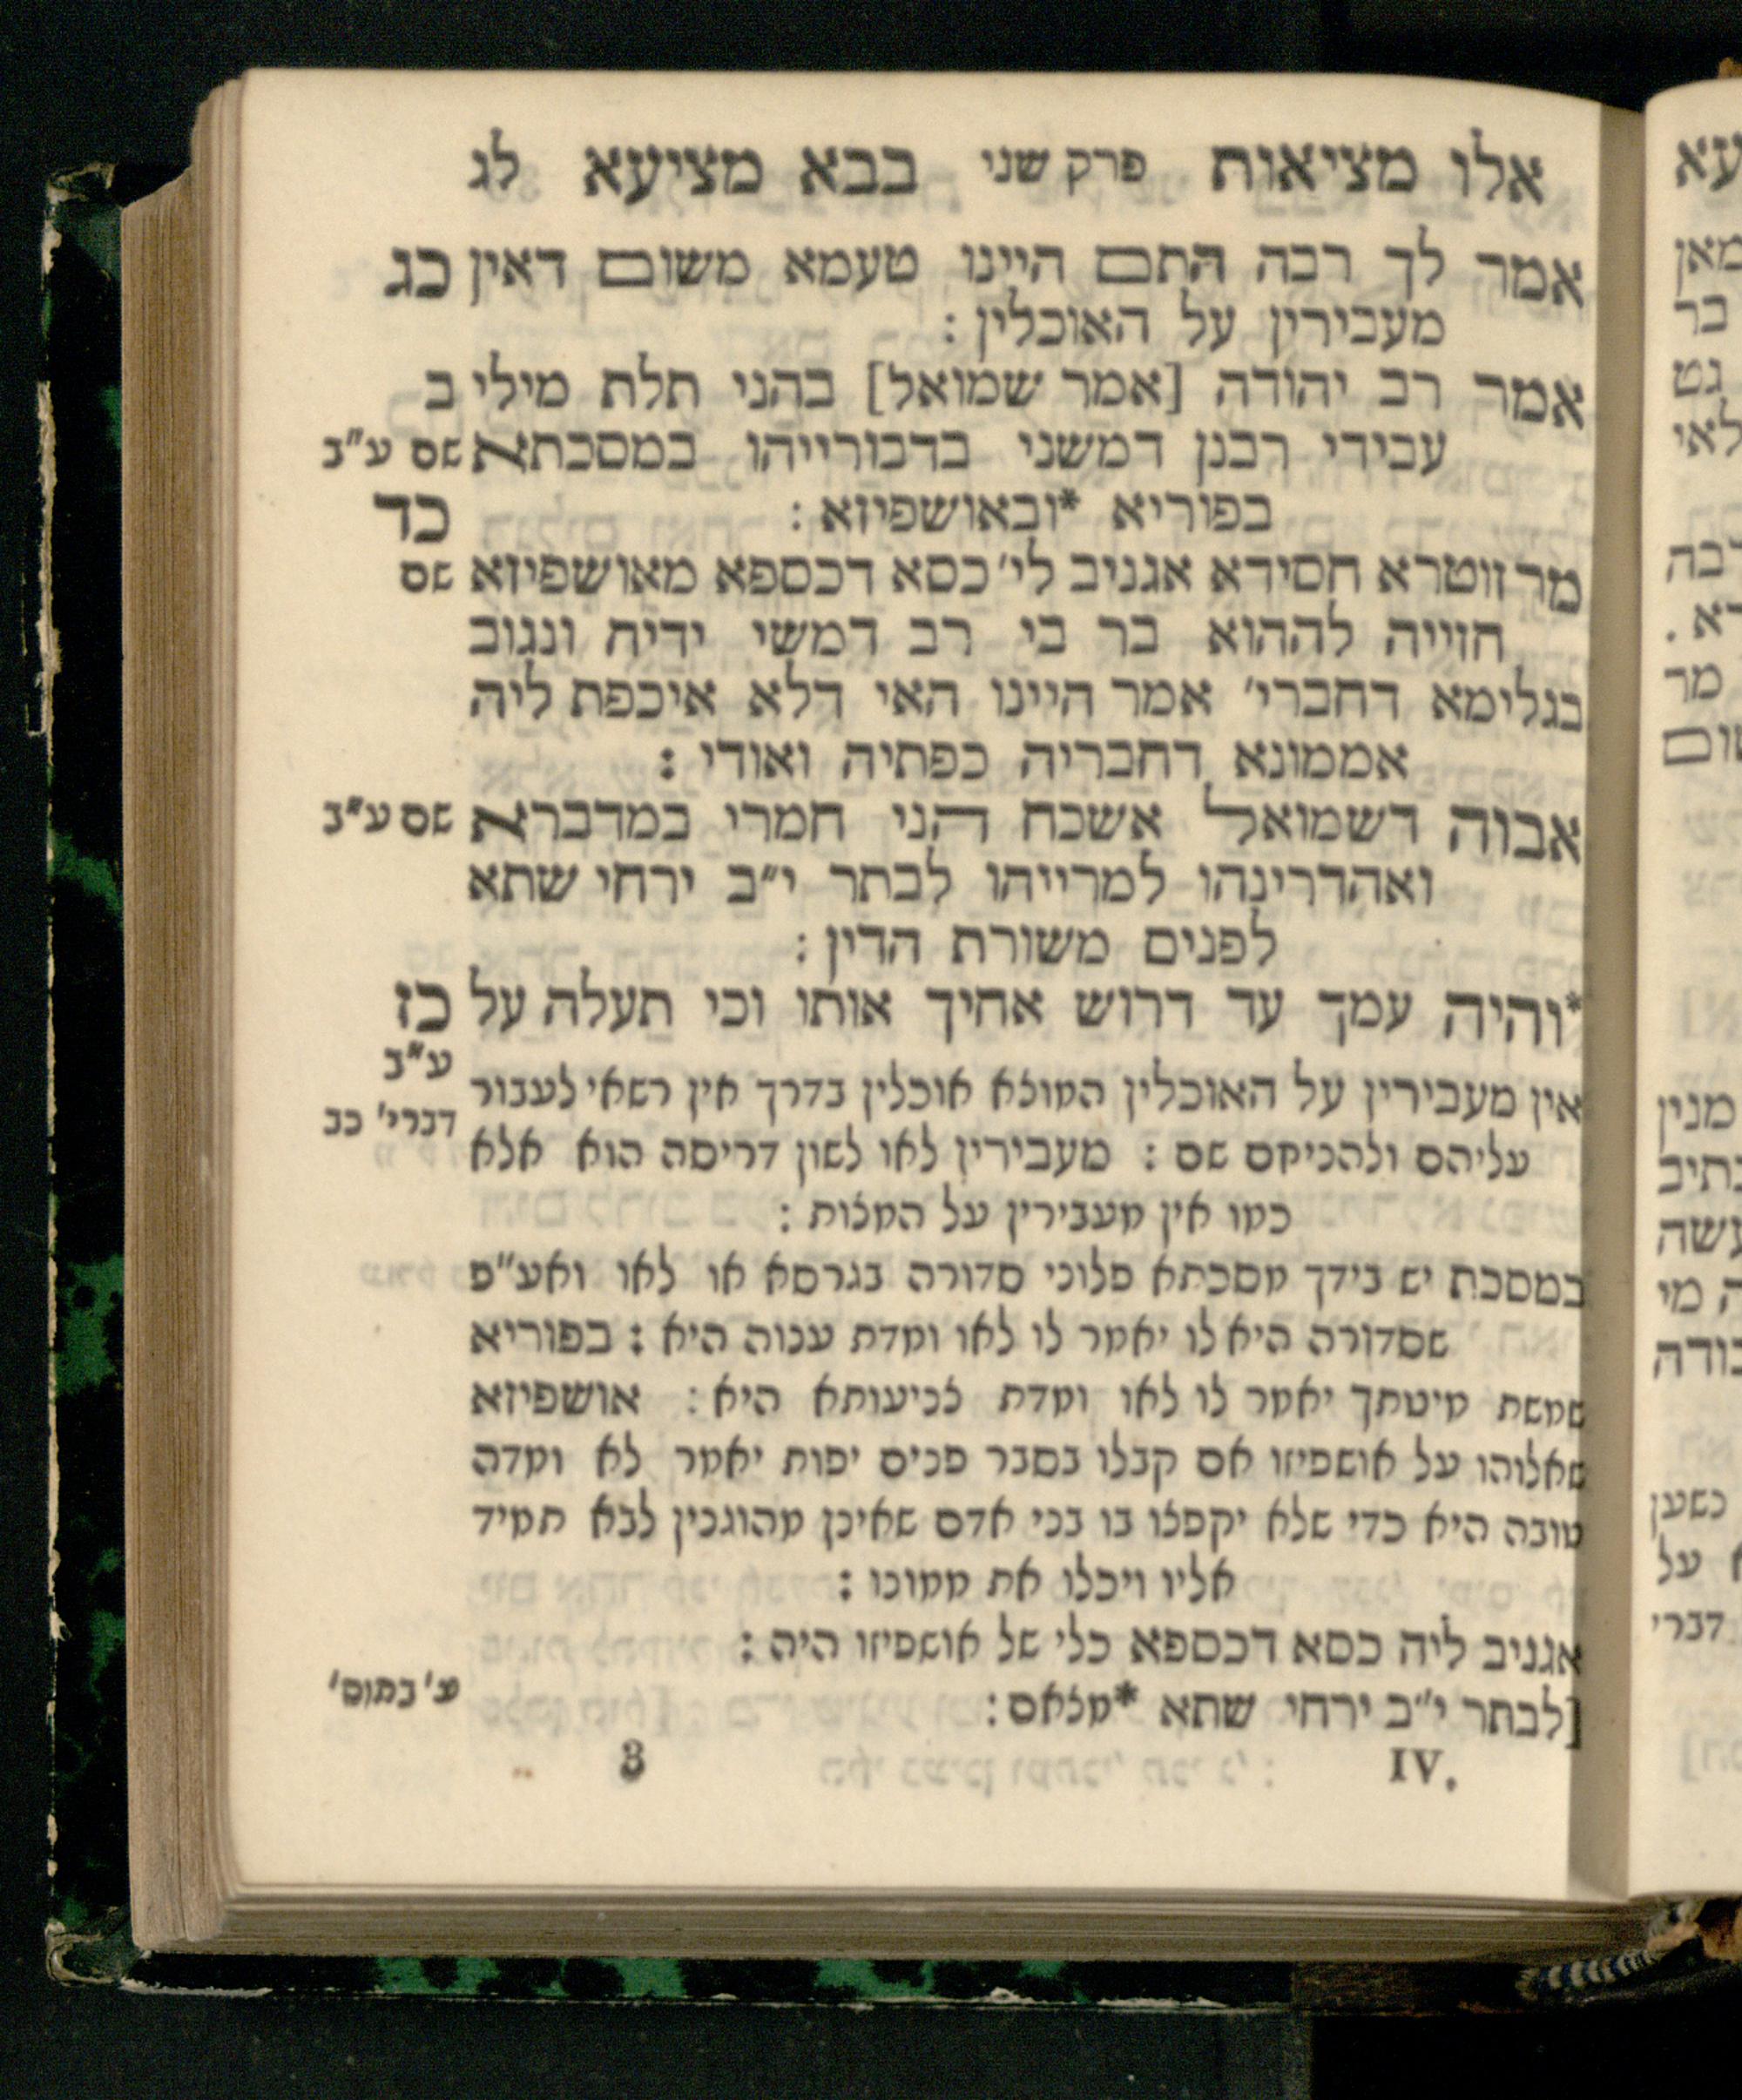 אלו מציאות פרק שני בבא מציעא לג
אמר לך רבה התם היינו טעמא משום דאין כג
מעבירין על האוכלין :
אמר רב יהודה [אמר שמואל] בהני תלת מילי ב
עבידי רבנן דמשני בדבורייהו במסכתא שם ע"ב
בפוריא *ובאושפיזא : כד
מר זוטרא חסידא אגניב לי' כסא דכספא מאושפיזא שם
חזייה לההוא בר בי רב דמשי ידיה ונגוב
בגלימא דחברי' אמר היינו האי דלא איכפת ליה
אממונא דחבריה כפתיה ואודי :
אבוה דשמואל אשכח הני חמרי במדברא שם ע"ב
ואהדרינהו למרייהו לבתר י"ב ירחי שתא
לפנים משורת הדין :
*והיה עמך עד דרוש אחיך אותו וכי תעלה על כז
ע"ב
אין מעבירין על האוכלין המוצא אוכלין בדרך אין רשאי לעבור
דברי' כב
עליהם ולהניחם שם : מעבירין לאו לשון דריסה הוא אלא
כמו אין מעבירין על המצות :
במסכת יש בידך מסכתא פלוני סדורה בגרסא או לאו ואע"פ
שסדורה היא לו יאמר לו לאו ומדת ענוה היא : בפוריא
שמשת מיטתך יאמר לו לאו ומדת צניעותא היא : אושפיזא
שאלוהו על אושפיזו אם קבלו בסבר פנים יפות יאמר לא ומדה
טובה היא כדי שלא יקפצו בו בני אדם שאינן מהוגנין לבא תמיד
אליו ויכלו את ממונו :
אגניב ליה כסא דכספא כלי של אושפיזו היה :
[לבתר י"ב ירחי שתא *מצאם :
ע' בתוס'
IV. 3